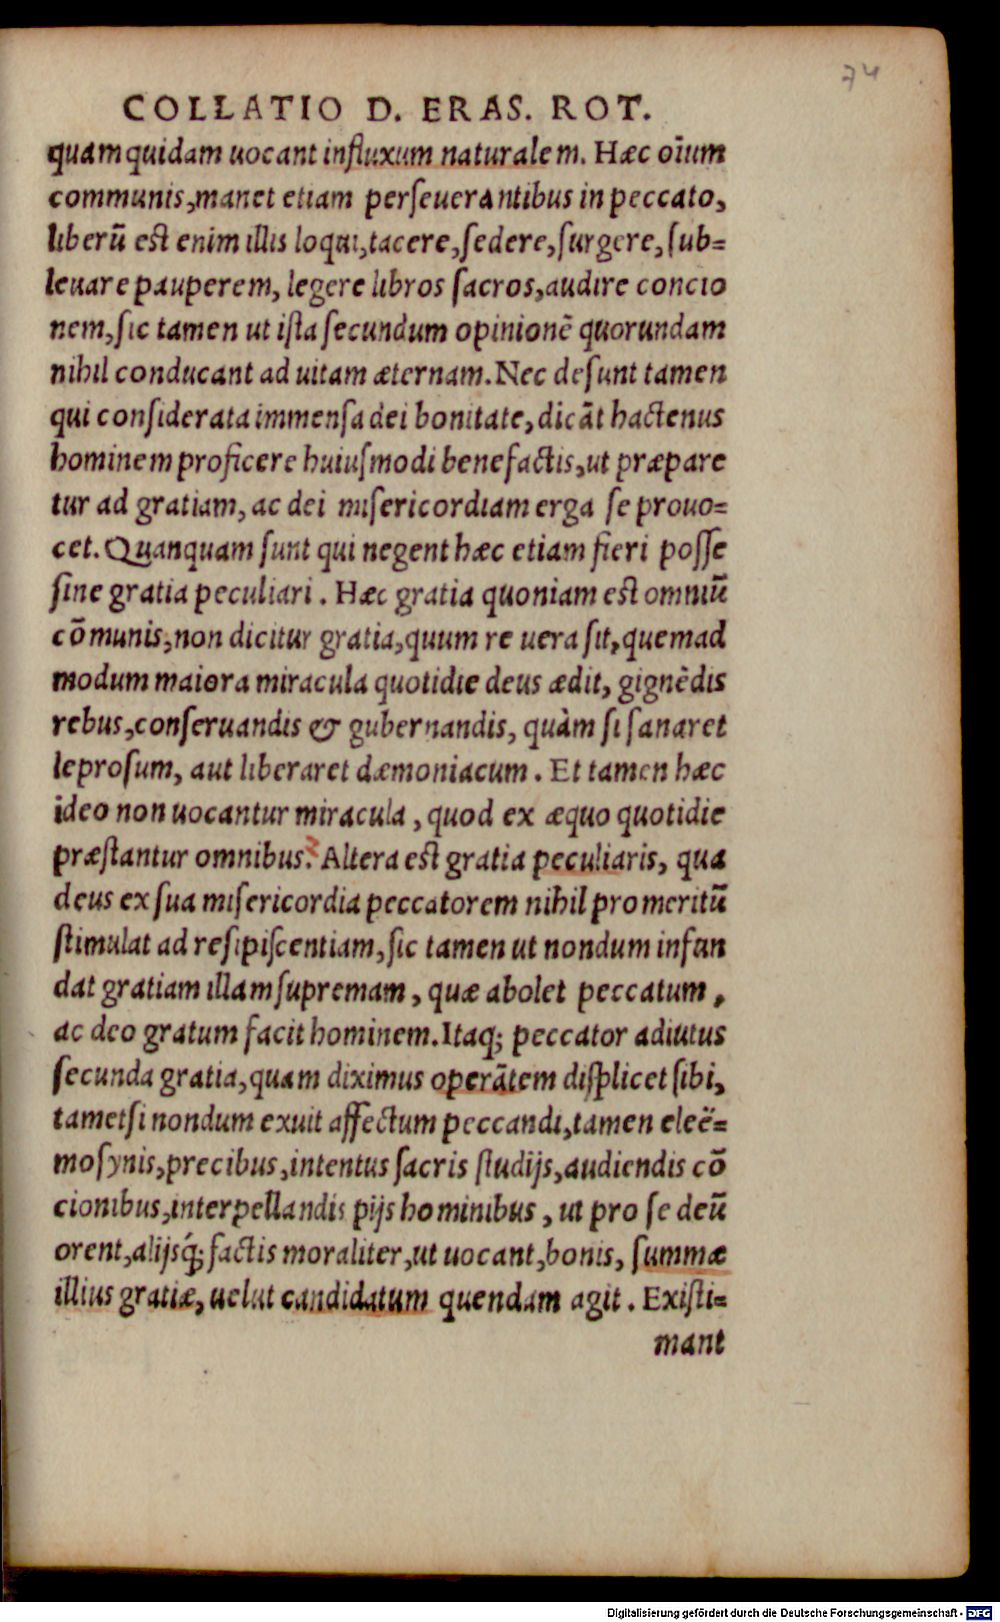 74
COLLATIO D. ERAS. ROT.
quam quidam uocant influxum naturalem. Hæc oīum
communis, manet etiam perſeuerantibus in peccato,
liberū eſt enim illis loqui, tacere, ſedere, ſurgere, ſub=
leuare pauperem, legere libros ſacros, audire concio
nem, ſic tamen ut iſta ſecundum opinionē quorundam
nihil conducant ad uitam æternam. Nec deſunt tamen
qui conſiderata immenſa dei bonitate, dicāt hactenus
hominem proficere huiuſmodi benefactis, ut præpare
tur ad gratiam, ac dei miſericordiam erga ſe prouo=
cet. Quanquam ſunt qui negent hæc etiam fieri poſſe
ſine gratia peculiari. Hæc gratia quoniam eſt omniū
cōmunis, non dicitur gratia, quum re uera ſit, quemad
modum maiora miracula quotidie deus ædit, gignēdis
rebus, conſeruandis & gubernandis, quàm ſi ſanaret
leproſum, aut liberaret dæmoniacum. Et tamen hæc
ideo non uocantur miracula, quod ex æquo quotidie
præſtantur omnibus. Altera eſt gratia peculiaris, qua
deus ex ſua miſericordia peccatorem nihil promeritū
ſtimulat ad reſipiſcentiam, ſic tamen ut nondum infun
dat gratiam illam ſupremam, quæ abolet peccatum,
ac deo gratum facit hominem. Itaq; peccator adiutus
ſecunda gratia, quam diximus operātem diſplicet ſibi,
tametſi nondum exuit affectum peccandi, tamen eleë=
moſynis, precibus, intentus ſacris ſtudijs, audiendis cō
cionibus, interpellandis pijs hominibus, ut pro ſe deū
orent, alijsq́; factis moraliter, ut uocant, bonis, ſummæ
illius gratiæ, uelut candidatum quendam agit. Exiſti=
mant
Digitalisierung gefördert durch die Deutsche Forschungsgemeinschaft - DFG